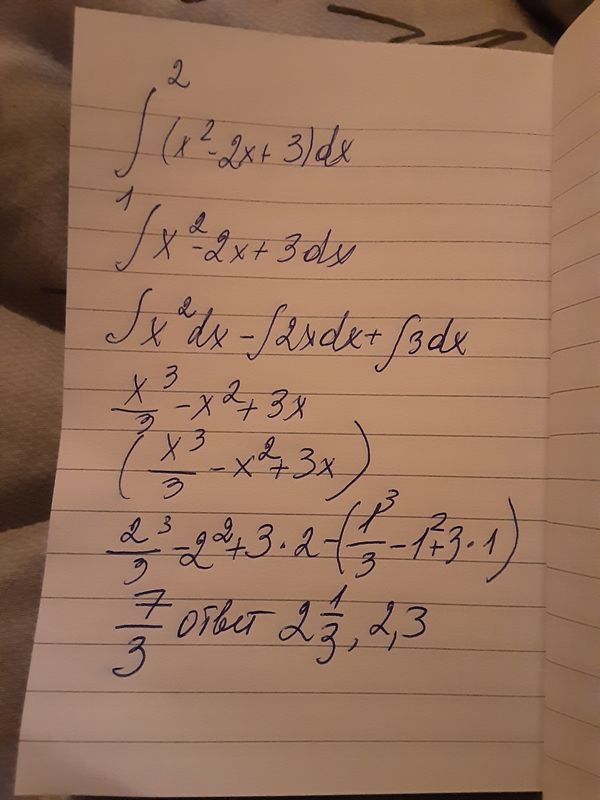 2
∫ (x² - 2x + 3) dx
1
∫ x² - 2x + 3 dx
∫ x² dx - ∫ 2x dx + ∫ 3 dx
x³/3 - x² + 3x
(x³/3 - x² + 3x)
2³/3 - 2² + 3 · 2 - (1³/3 - 1² + 3 · 1)
7/3 ответ 2 1/3, 2,3